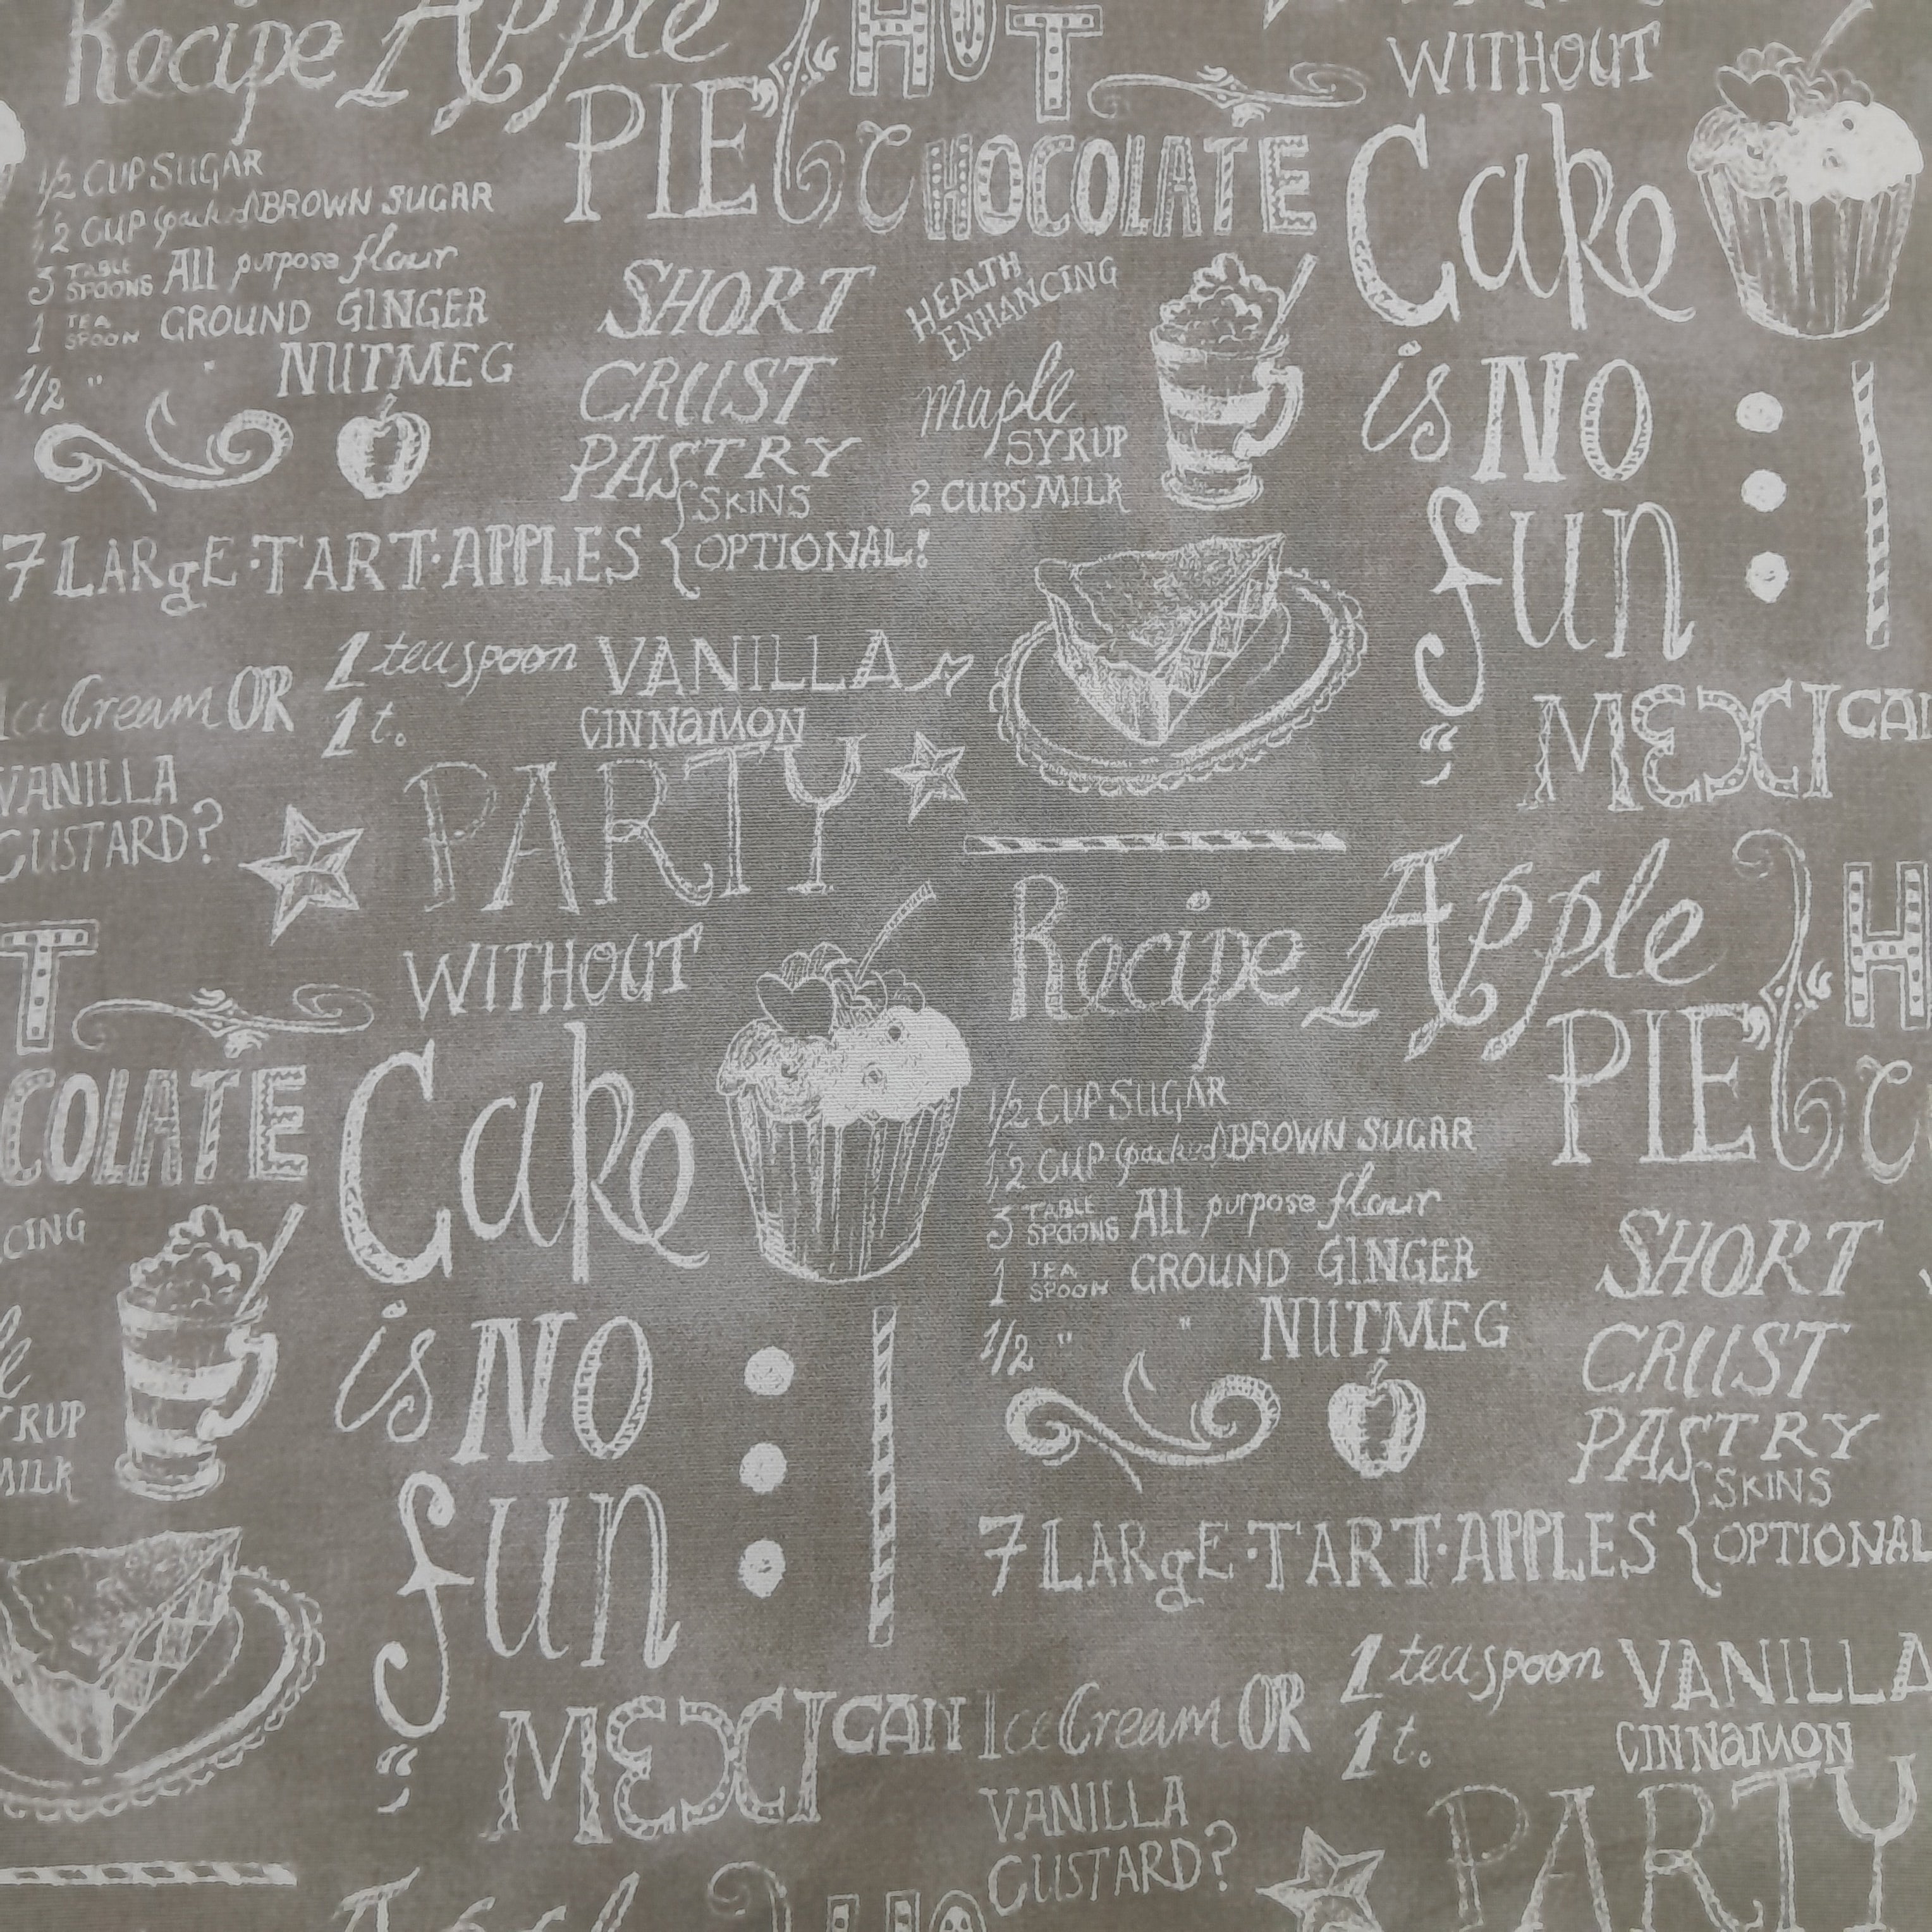 Recipe Apple
PIE
HOT
CHOCOLATE
WITHOUT
Cake
is NO
fun
1/2 CUP SUGAR
1/2 CUP (packed) BROWN SUGAR
3 TABLE SPOONS All purpose flour
1 TEA SPOON GROUND GINGER
1/2 " " NUTMEG
SHORT
CRUST
PASTRY
SKINS
7 LARgE·TART·APPLES { OPTIONAL!
HEALTH
ENHANCING
maple
SYRUP
2 CUPS MILK
MEXICAN
Ice Cream OR
VANILLA
CUSTARD?
1 teaspoon VANILLA
1 t. CINNAMON
PARTY
T
COLATE
CING
le
YRUP
MILK
WITHOUT
Cake
is NO
fun
MEXICAN
Recipe Apple
PIE
H
C
1/2 CUP SUGAR
1/2 CUP (packed) BROWN SUGAR
3 TABLE SPOONS All purpose flour
1 TEA SPOON GROUND GINGER
1/2 " " NUTMEG
SHORT
CRUST
PASTRY
SKINS
7 LARgE·TART·APPLES { OPTIONAL
Ice Cream OR
VANILLA
CUSTARD?
1 teaspoon VANILLA
1 t. CINNAMON
PARTY